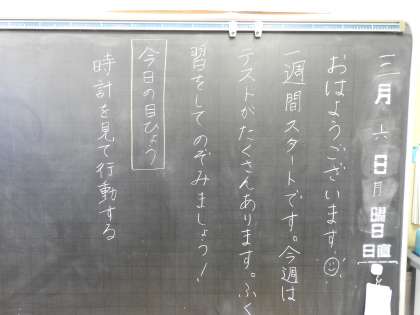 三月六日月曜日
日直
おはようございます
一週間スタートです。今週は
テストがたくさんあります。ふく
習をしてのぞみましょう!
今日の目ひょう
時計を見て行動する